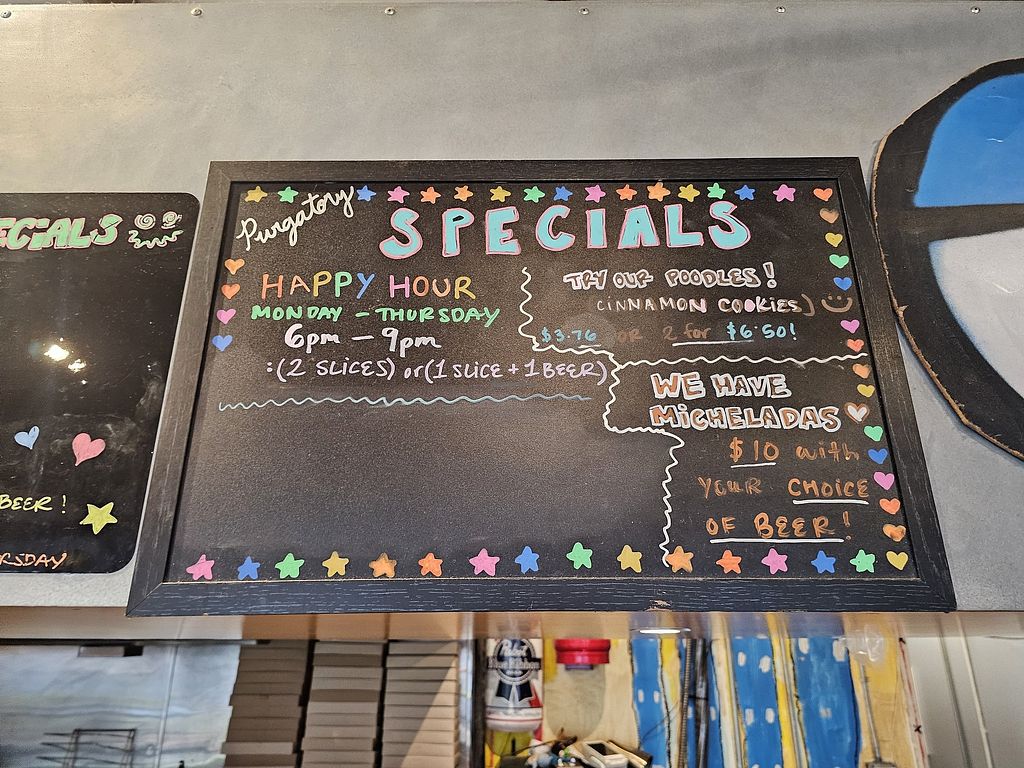 ECIALS
BEER!
RSDAY
Purgatory
SPECIALS
HAPPY HOUR
MONDAY - THURSDAY
6pm - 9pm
:(2 SLICES) or (1 SLICE + 1 BEER)
TRY OUR POODLES!
CINNAMON COOKIES)
$3.76 OR 2 for $6.50!
WE HAVE
MICHELADAS
$10 with
YOUR CHOICE
OF BEER!
Pabst
Blue Ribbon